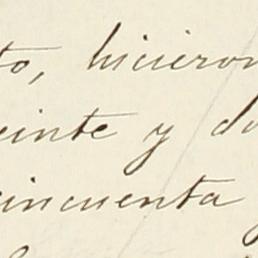 to, hicieron
einte y do
incuenta